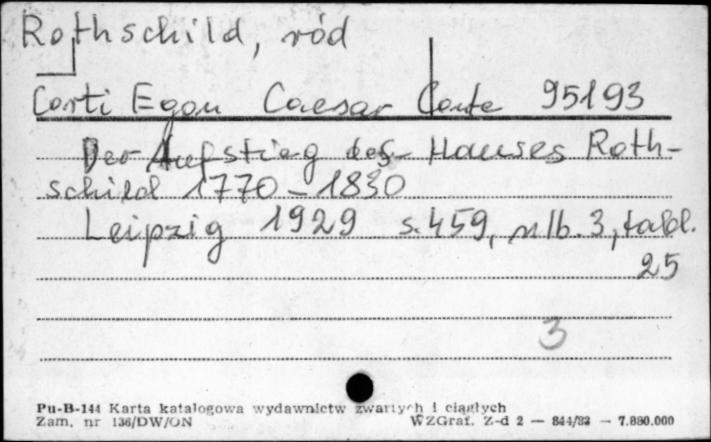 Rothschild, ród
Corti Egon Caesar Conte 95193
Der Aufstieg des Hauses Roth-
schild 1770-1830
Leipzig 1929 s. 459, nlb. 3, tabl.
25
3
Pu-B-144 Karta katalogowa wydawnictw zwartych i ciągłych
Zam. nr 136/DW/ON WZGraf. Z-d 2 — 844/83 — 7.880.000